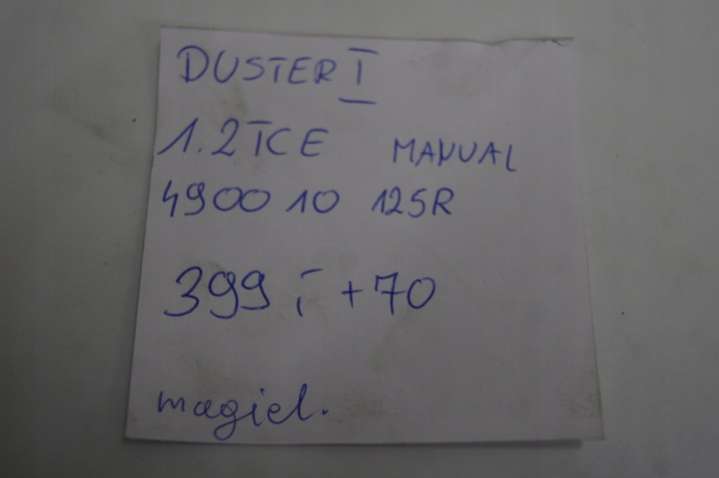 DUSTER I
1.2 TCE MANUAL
4900 10 125R
399,- +70
magiel.